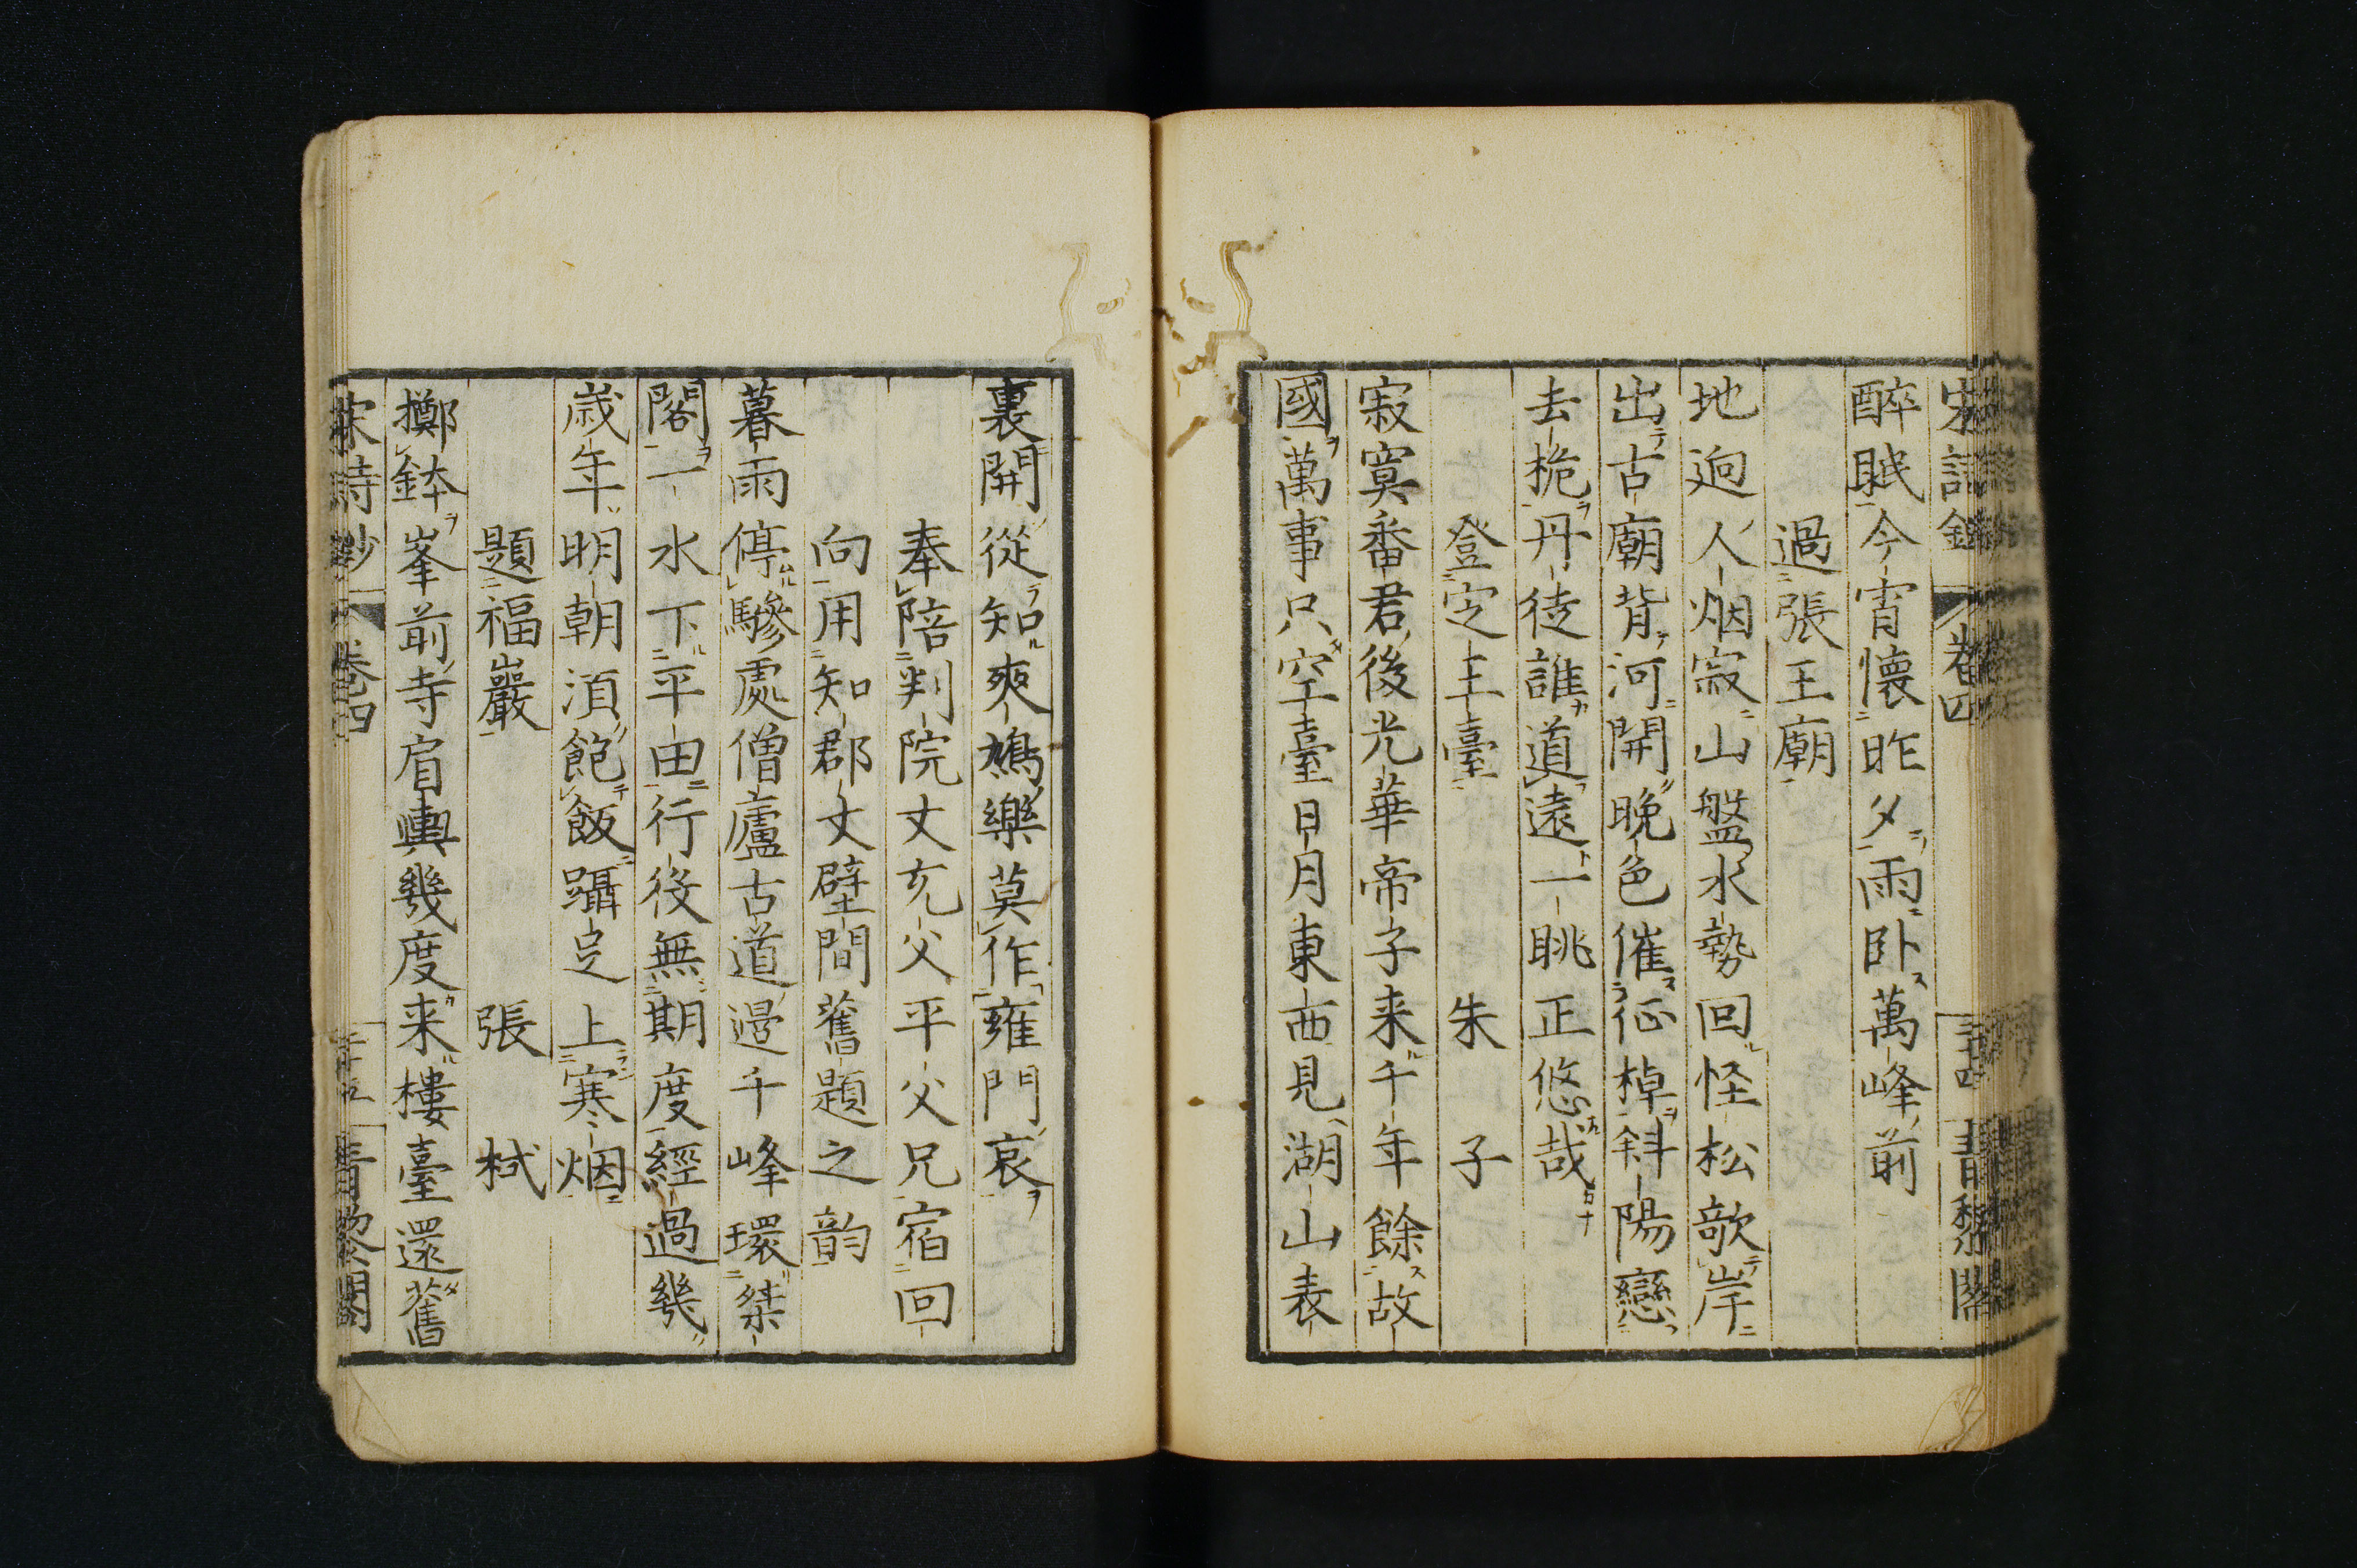 宋詩鈔 卷四 三十四 青黎閣
醉眠今宵懐昨夕雨臥萬峰前
過張王廟
地迥人烟寂山盤水勢回怪松欹岸
出古廟背河開晚色催征棹斜陽戀
去桅丹徒誰道遠一眺正悠哉
登定王臺 朱子
寂寞番君後光華帝子来千年餘故
國萬事只空臺日月東西見湖山表
裏開從知爽鳩樂莫作雍門哀
奉陪判院丈充父平父兄宿回
向用知郡丈壁間舊題之韵
暮雨停驂處僧廬古道邊千峰環桀
閣一水下平田行役無期度經過幾
歳年明朝須飽飯躡足上寒烟
題福巖 張栻
擲鉢峯前寺肩輿幾度来樓臺還舊
宋詩鈔 卷四 三十五 青黎閣